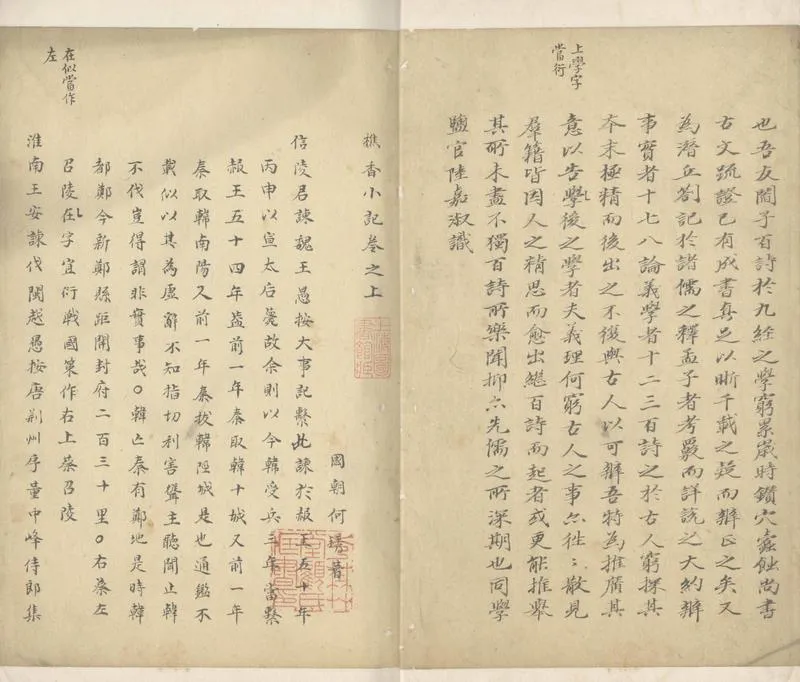 上學字
當衍
也吾友閻子百詩於九經之學窮累歲時鑽穴蠹蝕尚書
古文疏證已有成書真足以晰千載之疑而辯正之矣又
為潛丘劄記於諸儒之釋孟子者考覈而詳說之大約辯
事實者十七八論義學者十二三百詩之於古人窮探其
本末極精而後出之不復與古人以可辯吾特為推廣其
意以告學後之學者夫義理何窮古人之事亦往〻散見
羣籍皆因人之精思而愈出繼百詩而起者或更能推舉
其所未盡不獨百詩所樂聞抑亦先儒之所深期也同學
鹽官陸嘉淑識
樵香小記卷之上
國朝何 著
信陵君諫魏王愚按大事記繫此諫於赧王五十年
丙申以宣太后薨故余則以今韓受兵三年當繫
赧王五十四年蓋前一年秦取韓十城又前一年
秦取韓南陽又前一年秦拔韓陘城是也通鑑不
載似以其為虛辭不知指切利害聳主聽聞止韓
不伐豈得謂非實事哉○韓亡秦有鄭地是時韓
都鄭今新鄭縣距開封府二百三十里○右蔡左
召陵在字宜衍戰國策作右上蔡召陵
淮南王安諫伐閩越愚按唐荊州序董中峰侍郎集
在似當作
左